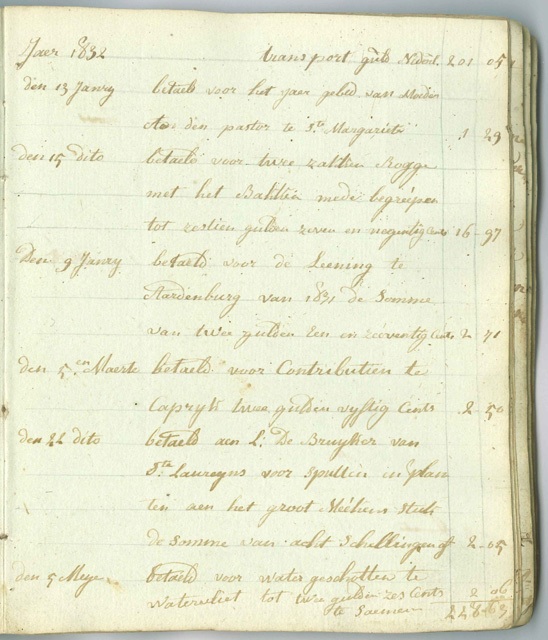 Jaer 1832 transport guld Nederl. 201 05
den 13 Janry betaelt voor het jaer gebed van Moeder
Aen den pastor te Ste Margariete 1 29
den 15 dito betaeld voor twee zakken Rogge
met het Bakken mede begreepen
tot zestien gulden zeven en negentig Cents 16-97
Den 9 Janry betaeld voor de Leening te
Aardenburg van 1831 de Somme
van twee gulden Een en zeeventig Cents 2 71
den 5en Maerte betaeld voor Contributien te
Capryk twee gulden vyftig Cents 2 50
den 22 dito betaeld aen L: De Bruykker van
Ste Laureyns voor Sputten en plan
ten aen het groot Stuk
de Somme van acht Schellingen 2-05
den 5 Meye betaeld voor water geschotten te
Watervliet tot twee gulden zes Cents 2 06
te Saemen 228-63